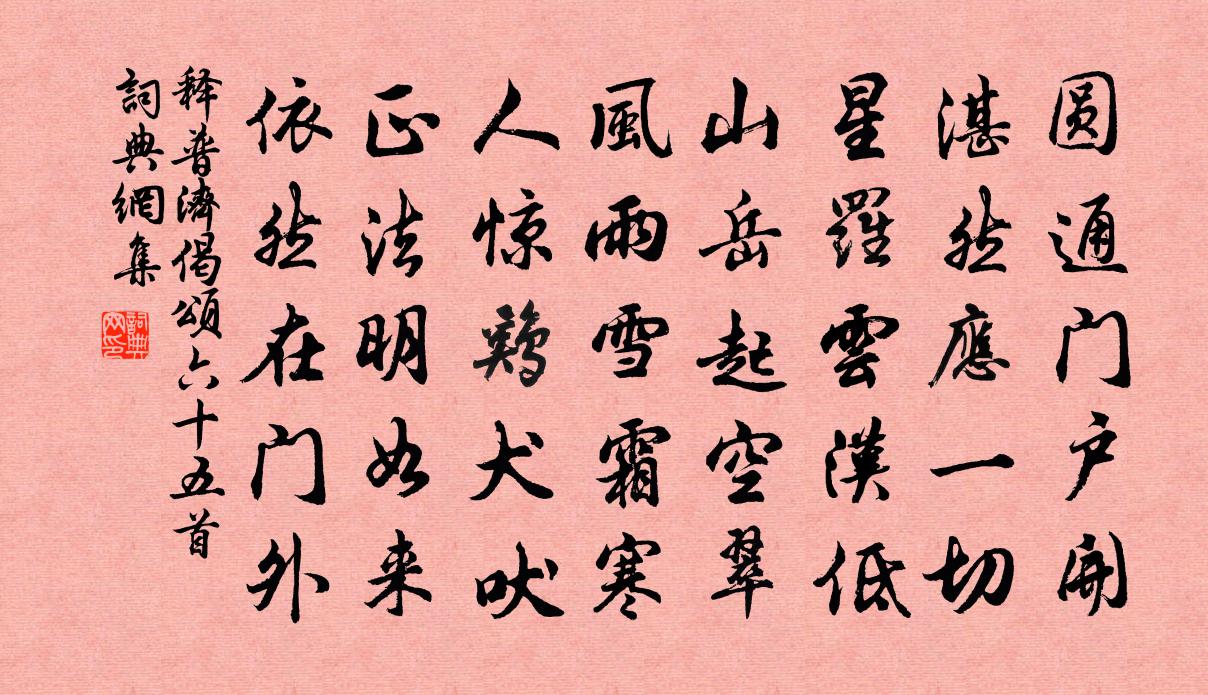 圆通门户開
湛然應一切
星羅雲漢低
山岳起空翠
風雨雪霜寒
人惊鷄犬吠
正法明如来
依然在门外
释普濟偈頌六十五首
詞典網集
詞典网印